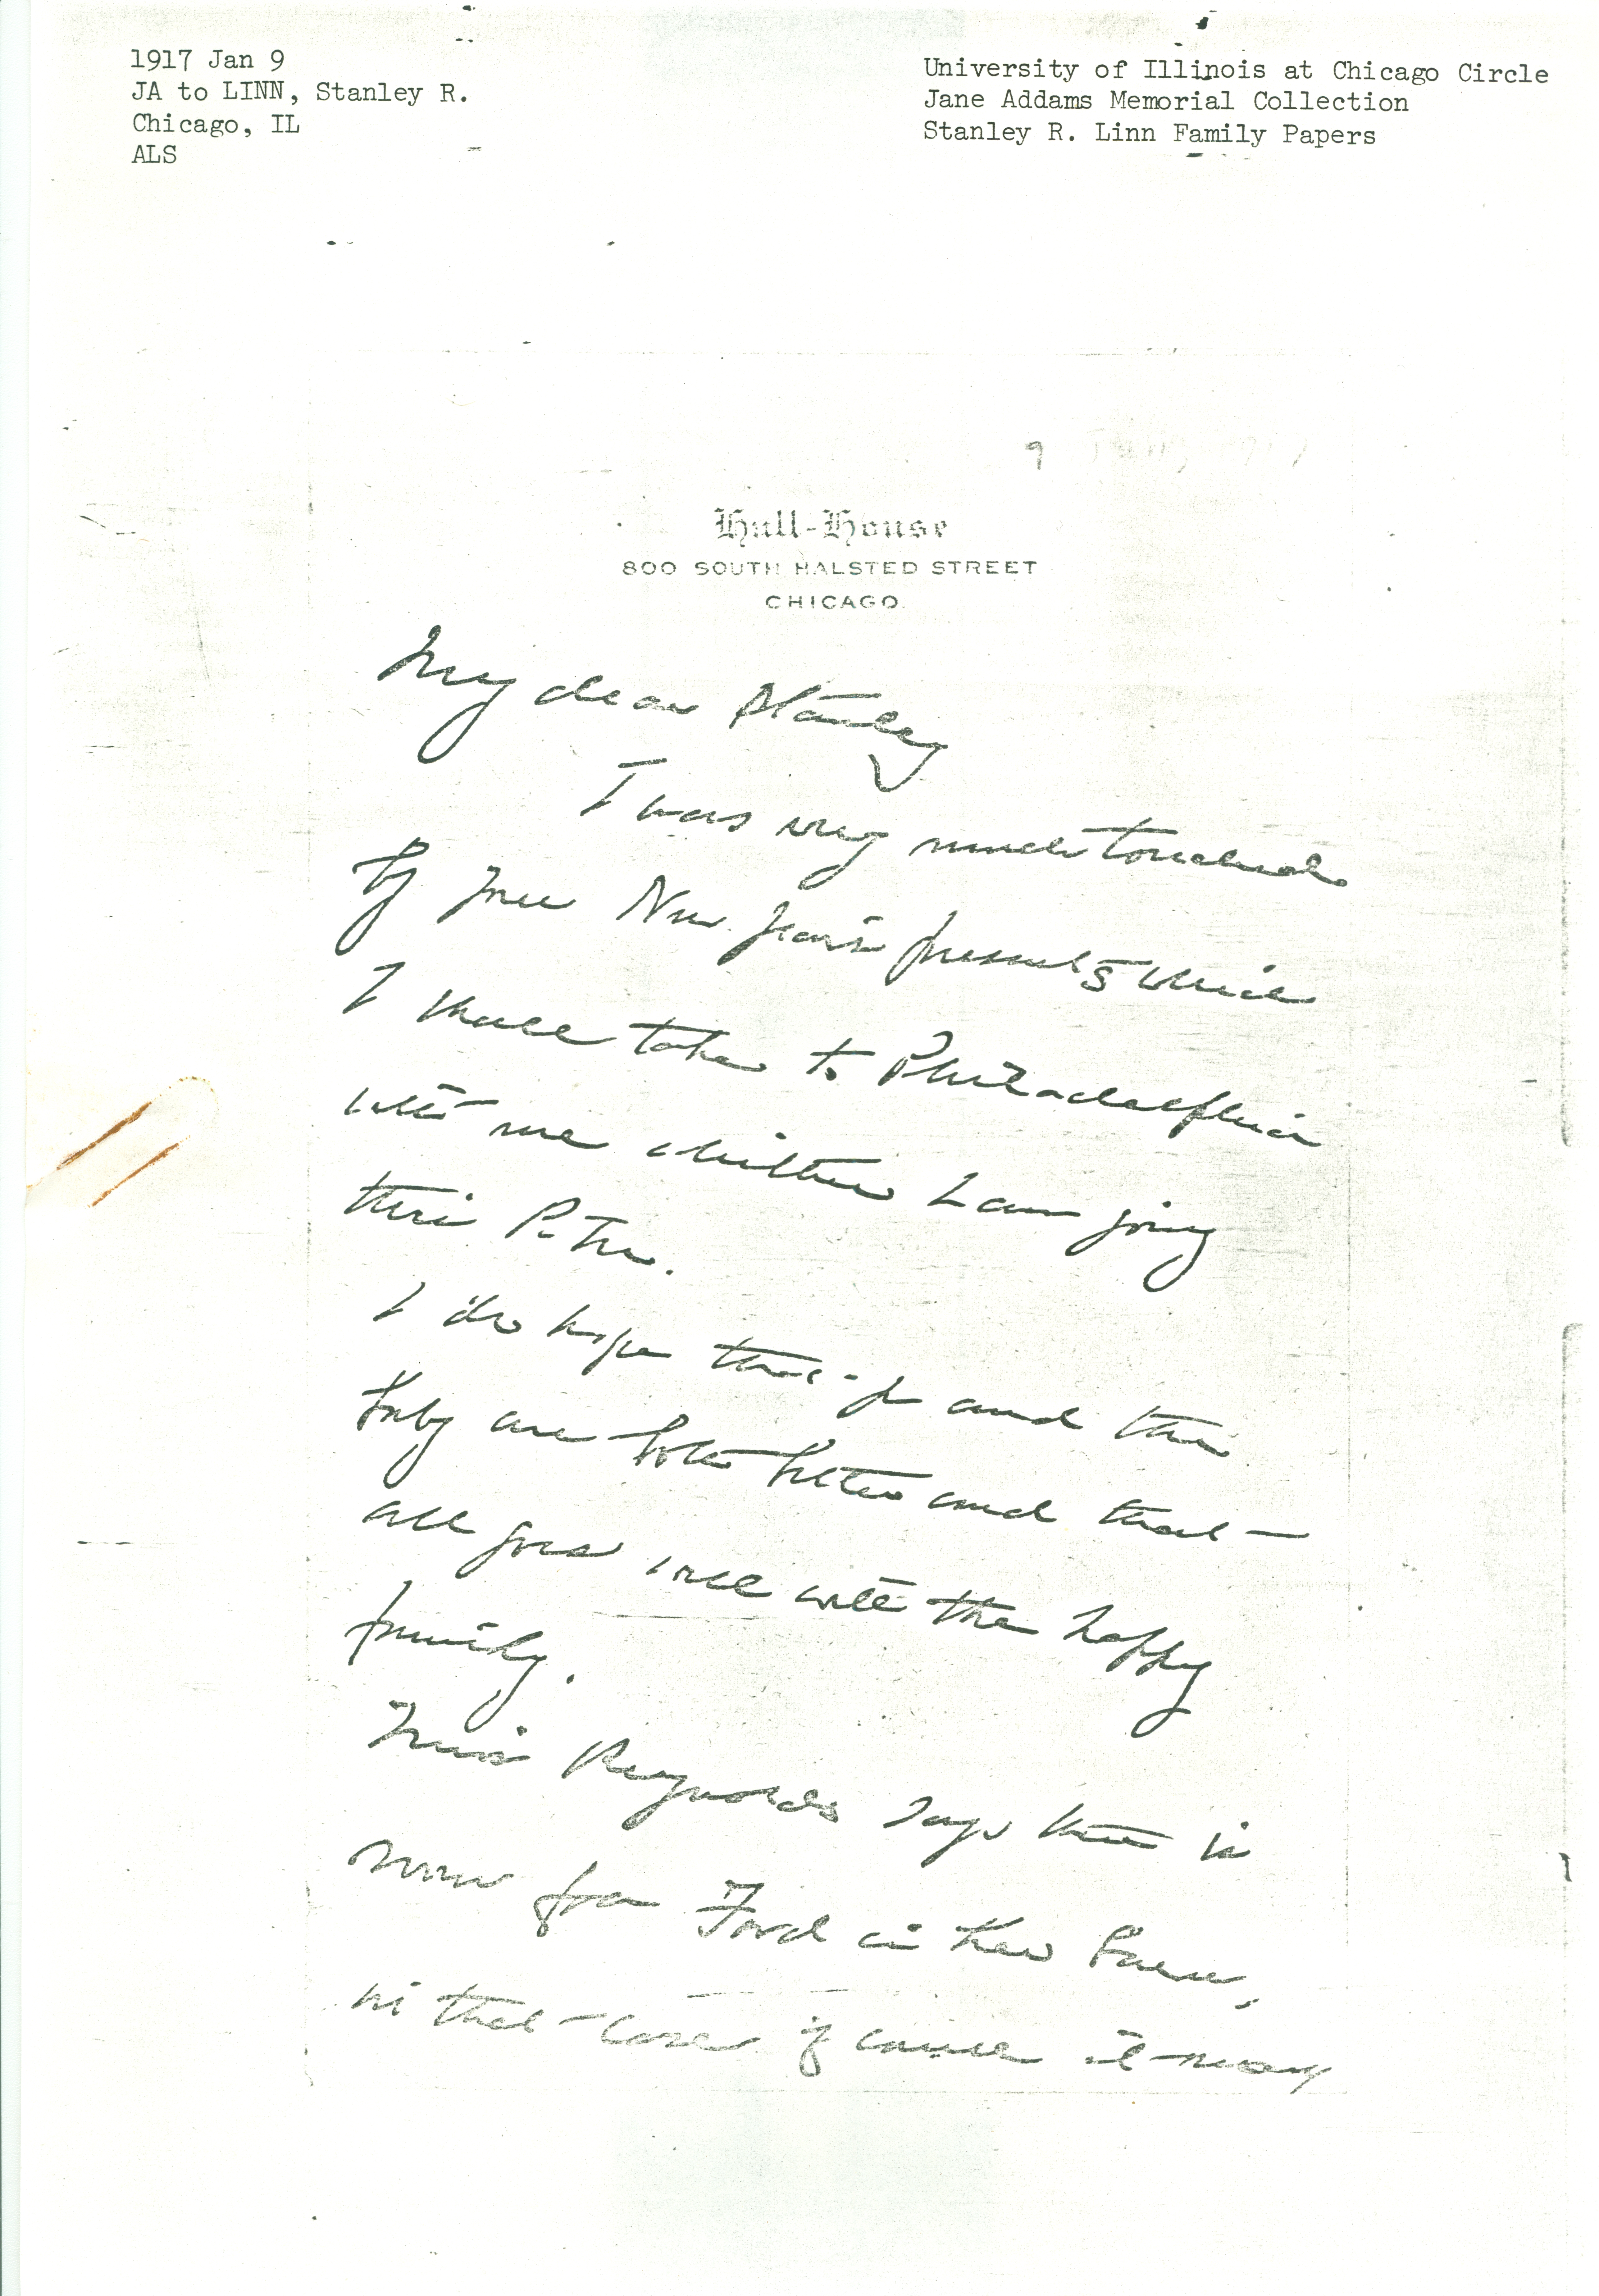 1917 Jan 9
JA to LINN, Stanley R.
Chicago, IL
ALS
University of Illinois at Chicago Circle
Jane Addams Memorial Collection
Stanley R. Linn Family Papers
9
Hull-House
800 SOUTH HALSTED STREET
CHICAGO.
My dear Stanley
I was very much touched
by your New Year's presents which
I shall take to Philadelphia
with me whither I am going
the
I do hope that and the
baby are both better and that
all goes well with the happy
family.
Miss Reynolds says there is
room for Ford in the barn,
in that case of course it may